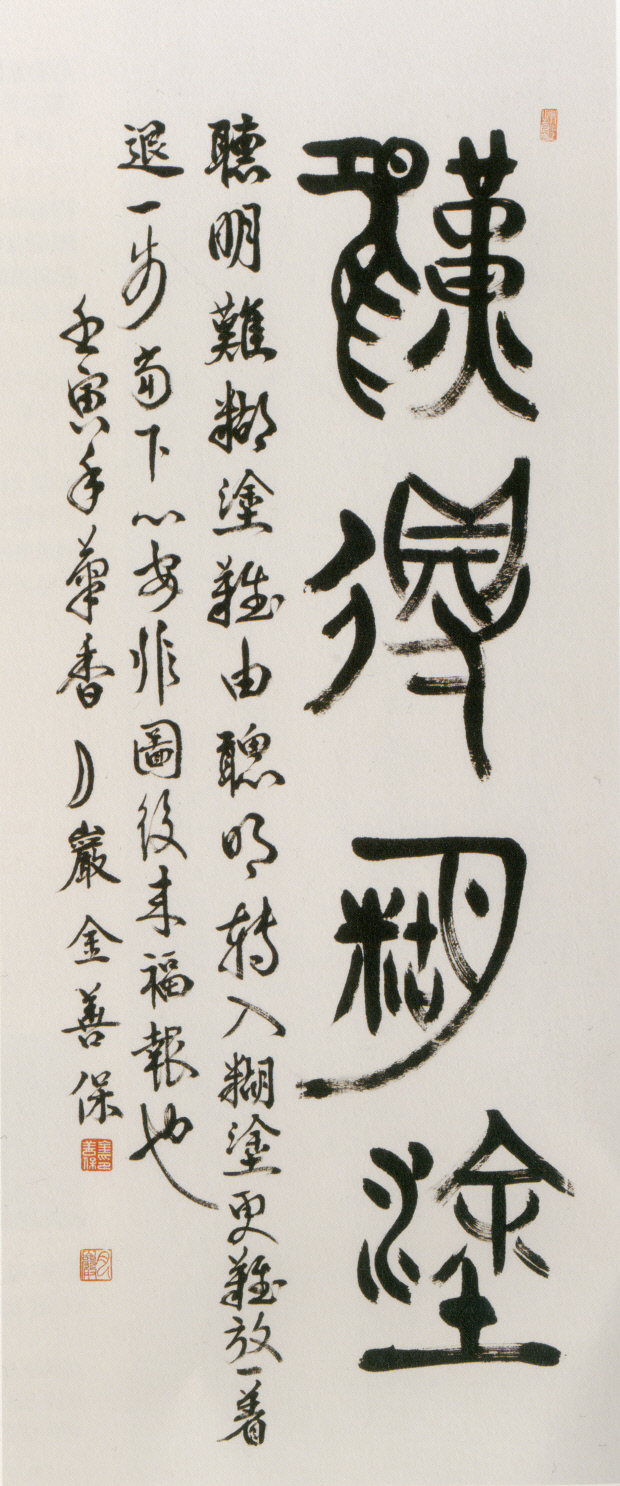 難得糊塗
聰明難糊塗難由聰明轉入糊塗更難放一着
退一步當下心安非圖後来福報也
壬寅年菊香月巖金善保